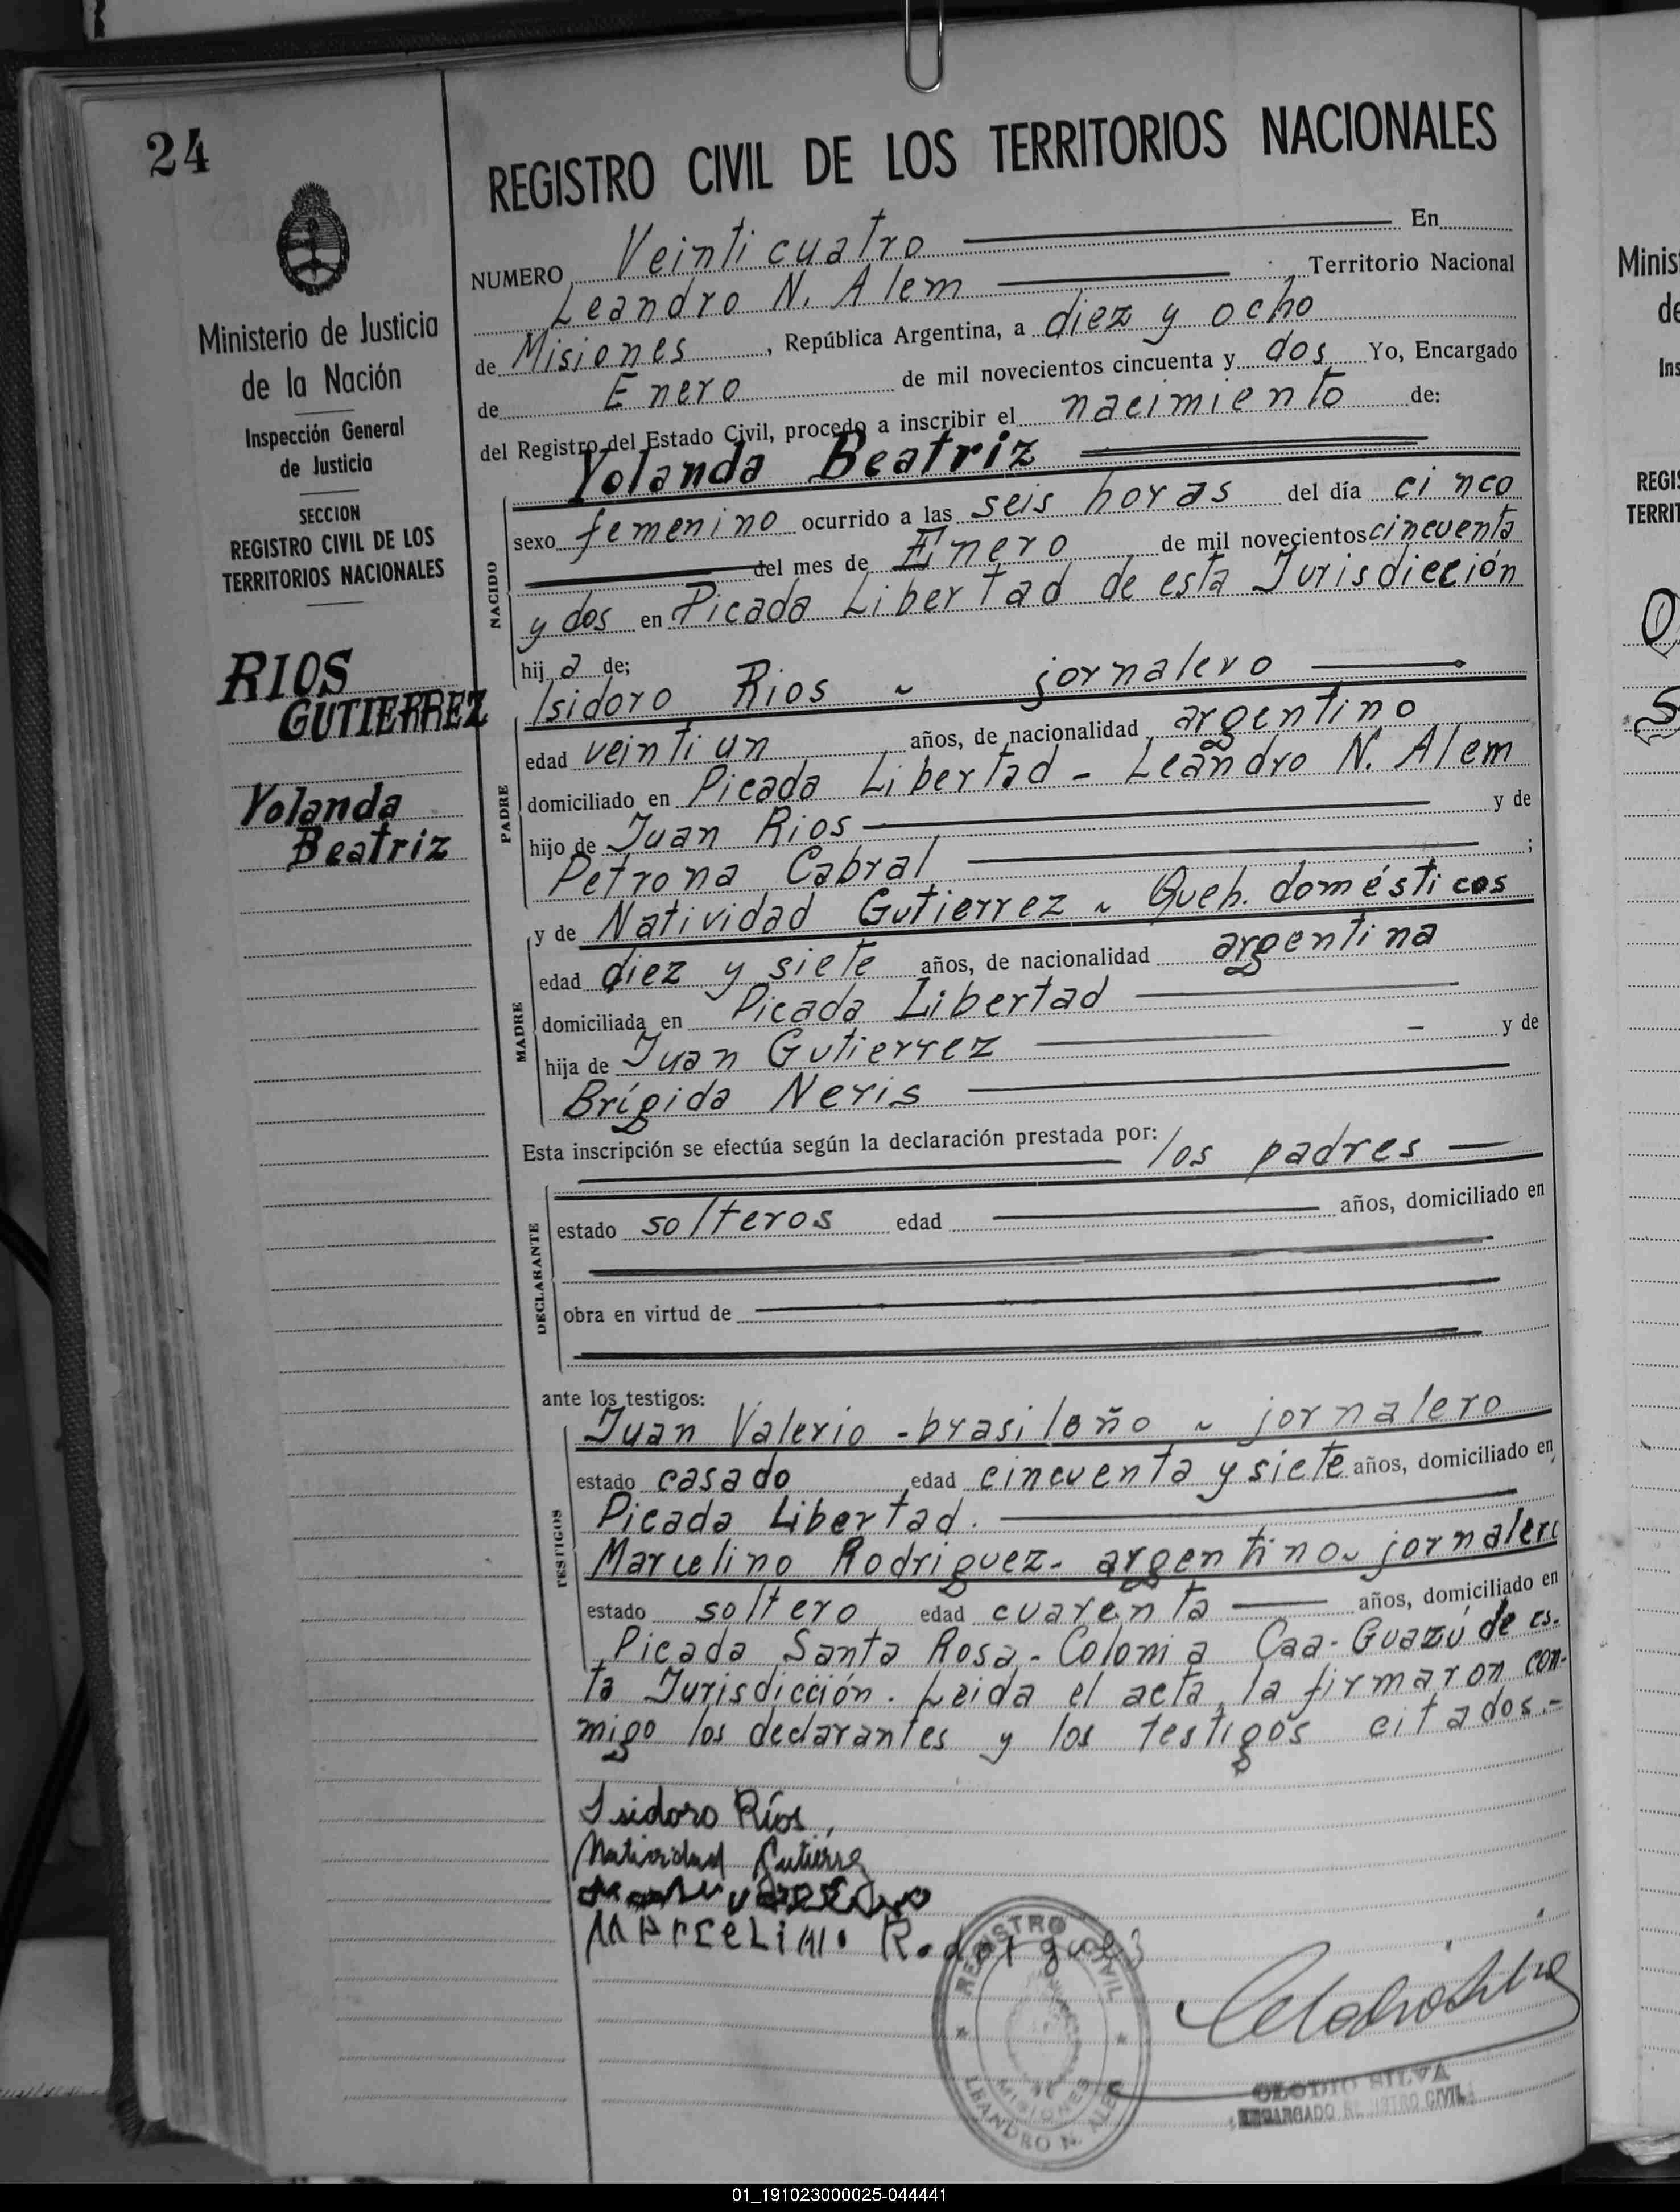 24
Ministerio de Justicia
de la Nación
Inspección General
de Justicia
SECCION
REGISTRO CIVIL DE LOS
TERRITORIOS NACIONALES
RIOS
GUTIERREZ
Yolanda
Beatriz
REGISTRO CIVIL DE LOS TERRITORIOS NACIONALES
NUMERO Veinti cuatro En
Leandro N. Alem , Territorio Nacional
de Misiones , República Argentina, a diez y ocho
de Enero de mil novecientos cincuenta y dos Yo, Encargado
del Registro del Estado Civil, procedo a inscribir el nacimiento de:
NACIDO
Yolanda Beatriz
sexo femenino ocurrido a las seis horas del día cinco
del mes de Enero de mil novecientos cincuenta
y dos en Picada Libertad de esta Jurisdicción
hij a de;
PADRE
Isidoro Rios ~ jornalero
edad veinti un años, de nacionalidad argentino
domiciliado en Picada Libertad - Leandro N. Alem
hijo de Juan Rios y de
Petrona Cabral ;
MADRE
y de Natividad Gutierrez ~ Queh. domésticos
edad diez y siete años, de nacionalidad argentina
domiciliada en Picada Libertad
hija de Juan Gutierrez y de
Brígida Neris
Esta inscripción se efectúa según la declaración prestada por: los padres
DECLARANTE
estado solteros edad años, domiciliado en
obra en virtud de
ante los testigos:
TESTIGOS
Juan Valerio - brasileño ~ jornalero
estado casado edad cincuenta y siete años, domiciliado en
Picada Libertad.
Marcelino Rodriguez - argentino ~ jornalero
estado soltero edad cuarenta años, domiciliado en
Picada Santa Rosa - Colonia Caa-Guazú de es-
ta Jurisdicción. Leida el acta, la firmaron con-
migo los declarantes y los testigos citados.-
Isidoro Ríos
Natividad Gutierrez
Marcelino Rodriguez
REGISTRO CIVIL
MISIONES
LEANDRO N. ALEM
CLODIO SILVA
ENCARGADO REGISTRO CIVIL
Minis
de
Ins
REGIS
TERRIT
01_191023000025-044441